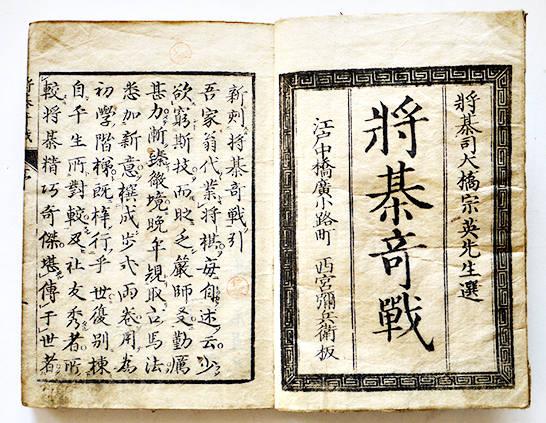 將棊司大橋宗英先生選
將棊奇戰
江戸中橋廣小路町 西宮彌兵衛板
新刻將棊奇戰引
吾家翁代業將棋每自述云少
欲窮斯技而眂之嚴師友勤厲
甚力漸臻微境晚年規取古馬法
悉加新意撰成步式兩卷用為
初學階梯既梓行乎世復別揀
自平生所對較及社友秀者所
較將棊精巧奇傑堪傳于世者